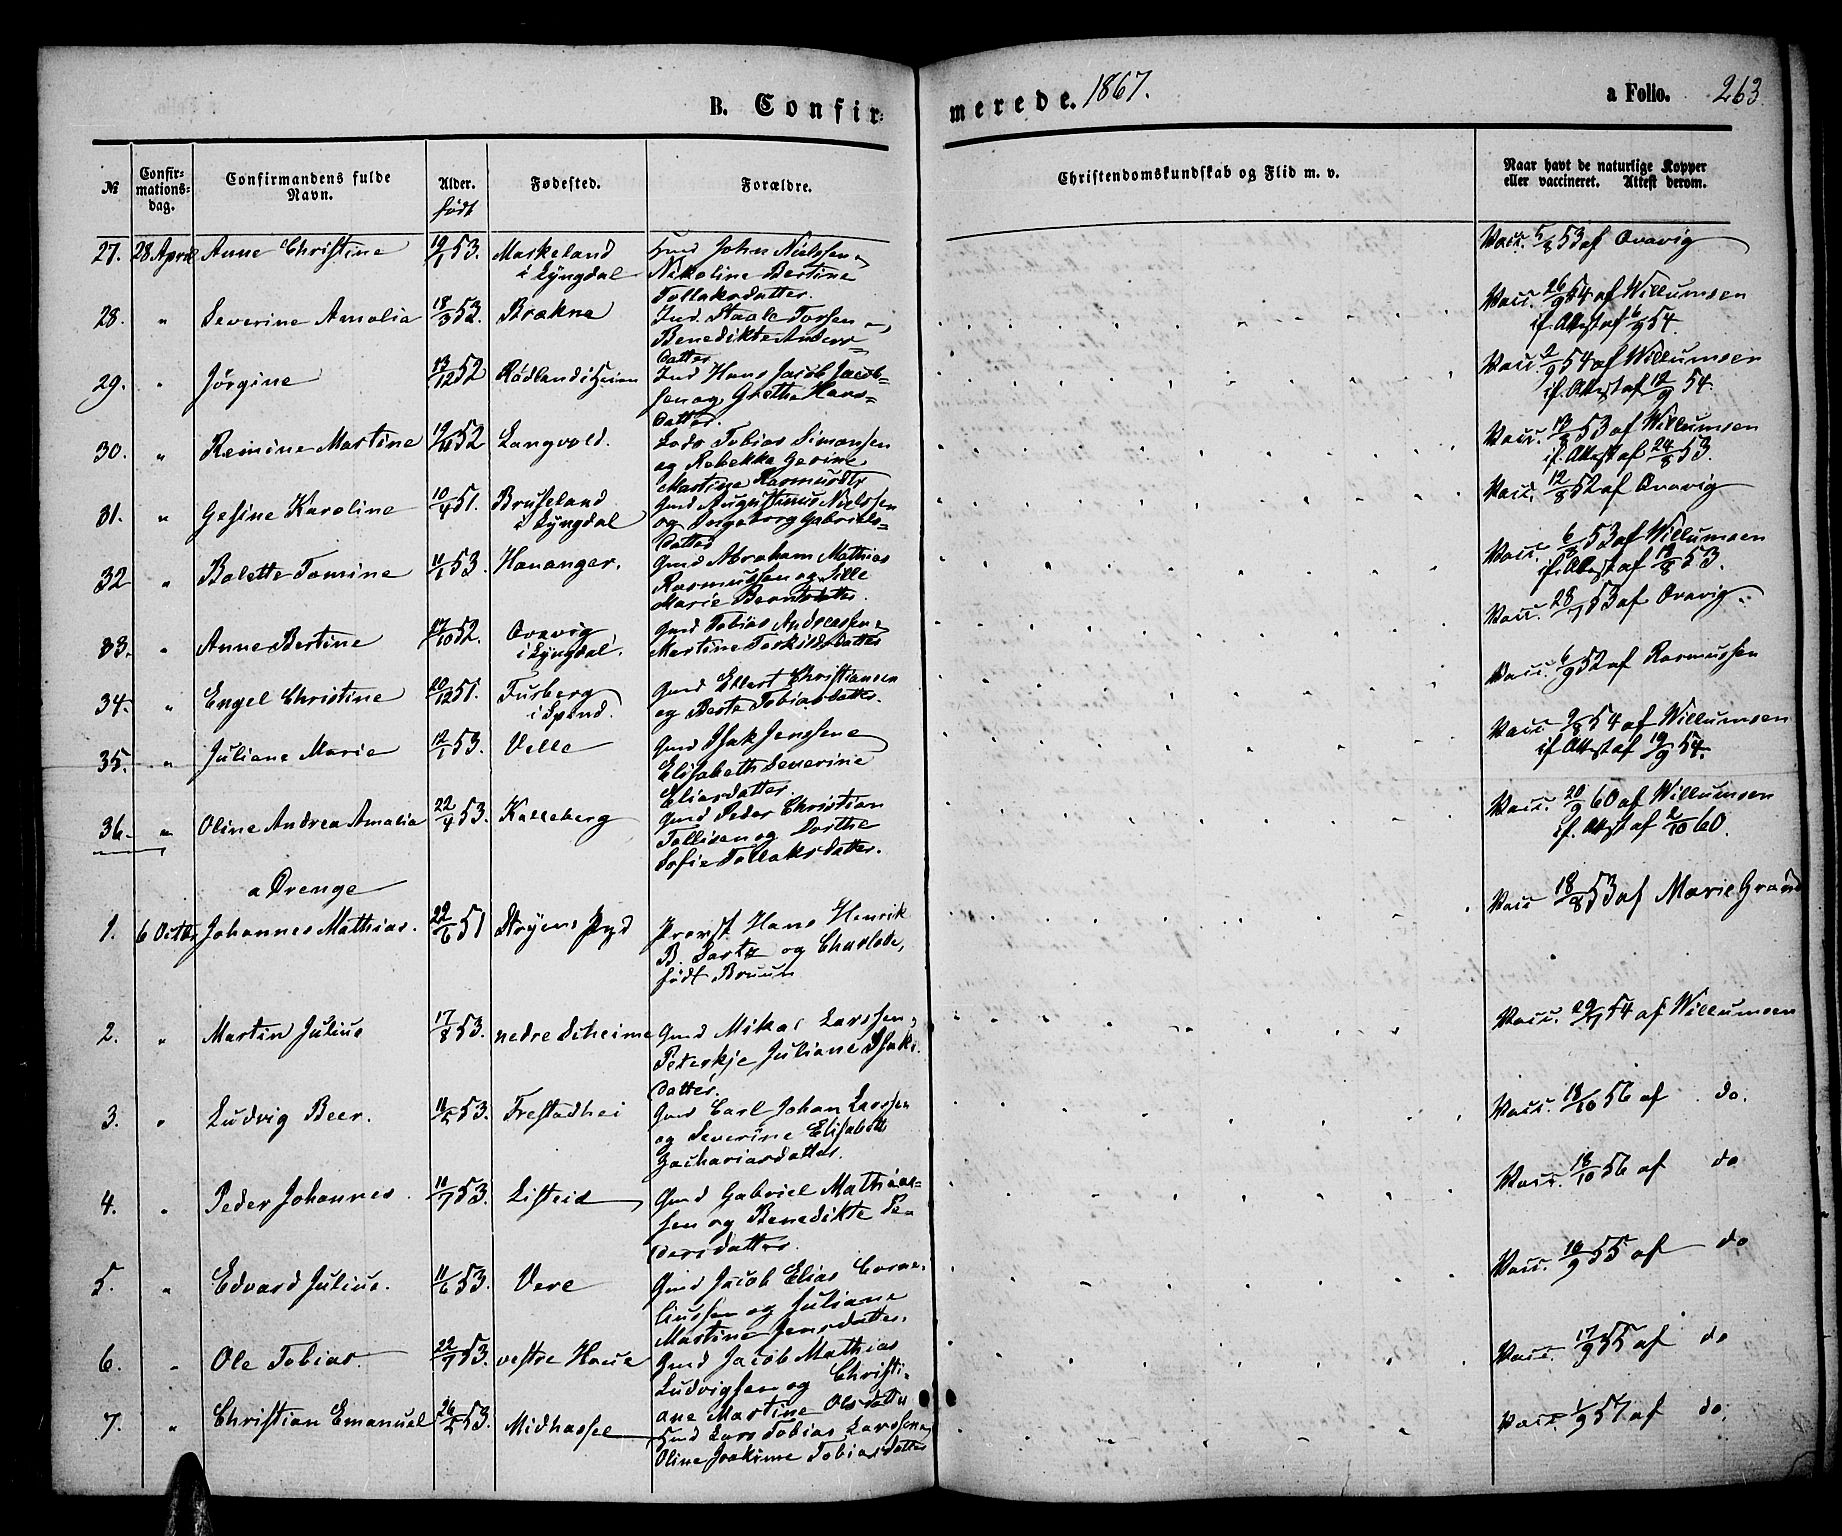 B. Confirmerede. 1867.
a Folio. 263
№
Confirmationsdag.
Confirmandens fulde Navn.
Alder. født
Fødested.
Forældre.
Christendomskundskab og Flid m. v.
Naar havt de naturlige Kopper eller vaccineret. Attest derom.
27. 28 April Anne Christine 19/1 53. Maskeland i Lyngdal
John Nielssen
Nikoline Bertine
Tollaksdatter.
Vacc. 5/8 53 af Ovavig
28. " Severine Amalia 18/3 53. Brækne
Staale Torsen
Benedikte Anders=
datter
Vacc. 26/9 54 af Willumsen
if. Attest af 54.
29. " Jørgine 13/12 52 Rødland i Heien
Ind Hans Jacob Jacob=
sen og Grethe Hans=
datter.
Vacc. 2/9 54 af Willumsen
if. Attest af 12/9 54.
30. " Remine Martine 52 Langvold.
Lods Tobias Simonsen
og Rebekka Gesine
Martine Rasmusdtr
Vacc. 53 af Willumsen
if. Attest af 24/8 53.
31. " Gesine Karoline 10/4 51. Bruseland i Lyngdal
Gmd Augustinus Nielssen
og Ingeborg Gabriels=
datter
Vacc. 12/8 52 af Ovavig
32 " Bolette Tomine 11/1 53. Hananger.
Gmd Abraham Mathias
Rasmussen og Sille
Marie Berntsdatter.
Vacc. 53 af Willumsen
if. Attest af 18/8 53.
33. " Anne Bertine 10 52. Ovavig i Lyngdal.
Gmd Tobias Andreassen
Martine Torkildsdatter
Vacc. 28/7 53 af Ovavig.
34. " Engel Christine 20/12 51. Fusberg i Spind.
Gmd Ellert Christiansen
og Berte Tobiasdatter.
Vacc. 6/9 52 af Rasmussen
35. " Juliane Marie 12/1 53. Velle
Gmd Isak Jenssen
Elisabeth Severine
Eliasdatter.
Vacc. 9/8 54 af Willumsen
if. Attest af 19/9 54.
36. " Oline Andrea Amalia 22/4 53. Kalleberg
Gmd Peder Christian
Tollisen og Dorthe
Sofie Tollaksdatter.
Vacc. 20/9 60 af Willumsen
if. Attst af 2/10 60.
a Drenge
1. 6 Octbr Johannes Mathias. 22/6 51
Provst Hans Henrik
B. og Charlotte,
født Bruun
Vacc 18/8 53 af Marie
2. " Martin Julius 17/8 53. nedre Skeime
Gmd Mikal Larssen,
Pederkje Juliane Isaks
datter.
Vacc. 54 af Willumsen
3. " Ludvig Beer. 53. Frestadhei
Gmd Carl Johan Larssen
og Severine Elisabeth
Zachariasdatter.
Vacc. 18/10 56 af do.
4. " Peder Johannes. 11/7 53. Listeid
Gmd Gabriel Mathias=
sen og Benedikte Pe=
dersdatter.
Vacc. 18/10 56 af do
5. " Edvard Julius. 11/6 53. Vere
Gmd Jacob Elias Corne=
liussen og Juliane
Martine Jensdatter.
Vacc. 55 af do
6. " Ole Tobias. 22/7 53. vestre Haue
Gmd Jacob Mathias
Ludvigsen og Christi=
ane Martine Olsdatter
Vacc. 17/9 55 af do
7. " Christian Emanuel 53. Midhassel
Lars Tobias Larssen
Oline Joakime Tobiasdatter
Vacc. 1/9 57 af do.